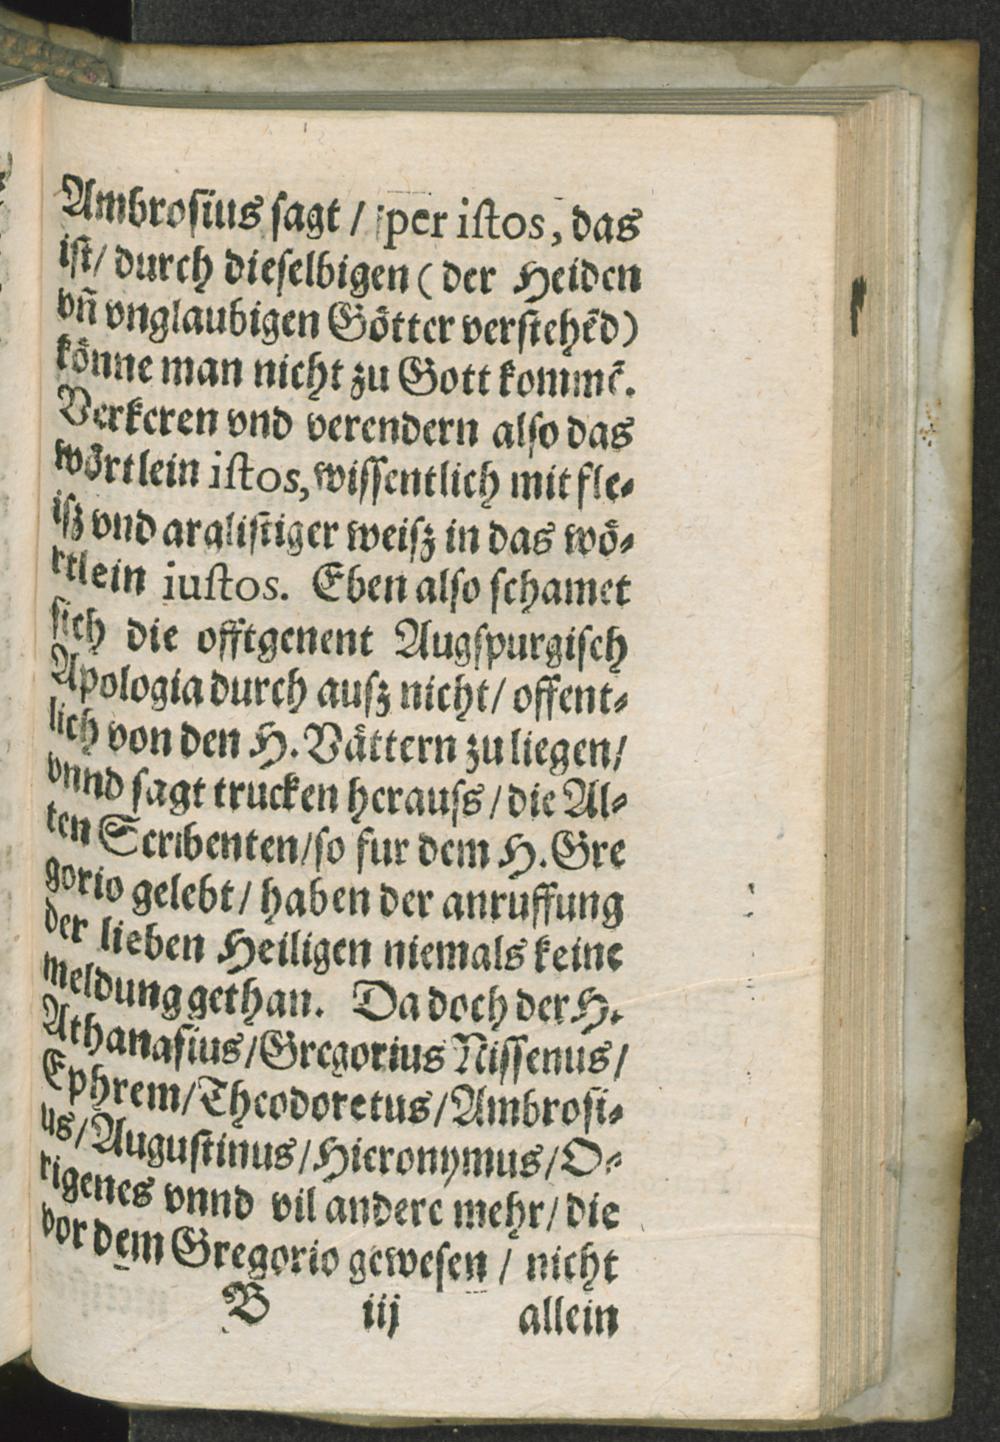 Ambrosius sagt / per istos, das
ist/ durch dieselbigen ( der Heiden
vñ vnglaubigen Götter verstehẽd)
könne man nicht zu Gott kommẽ.
Verkeren vnd verendern also das
wörtlein istos, wissentlich mit fle-
isz vnd aralistiger weisz in das wö-
rtlein iustos. Eben also schamet
sich die offtgenent Augspurgisch
Apologia durch ausz nicht/ offent-
lich von den H. Vättern zu liegen/
vnnd sagt trucken herauss / die Al-
ten Scribenten/so fur dem H. Gre
gorio gelebt / haben der anruffung
der lieben Heiligen niemals keine
meldung gethan. Da doch der H.
Athanasius /Gregorius Nissenus /
Ephrem/Theodoretus/Ambrosi-
us/Augustinus/Hieronymus/O-
rigenes vnnd vil andere mehr/ die
vor dem Gregorio gewesen / nicht
B iij allein